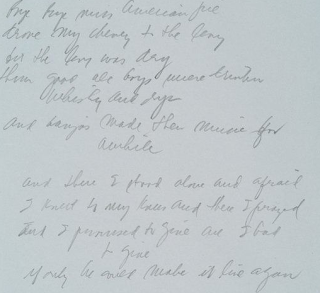 Bye Bye miss American pie
drove my chevey to the levy
but the levy was dry
them good ole boys were drinkin
Whiskey and rye
and banjos made their music for
awhile
and there I stood alone and afraid
I knelt to my knees and there I prayed
and I promised to give all I had
to give
if only he could make it live again